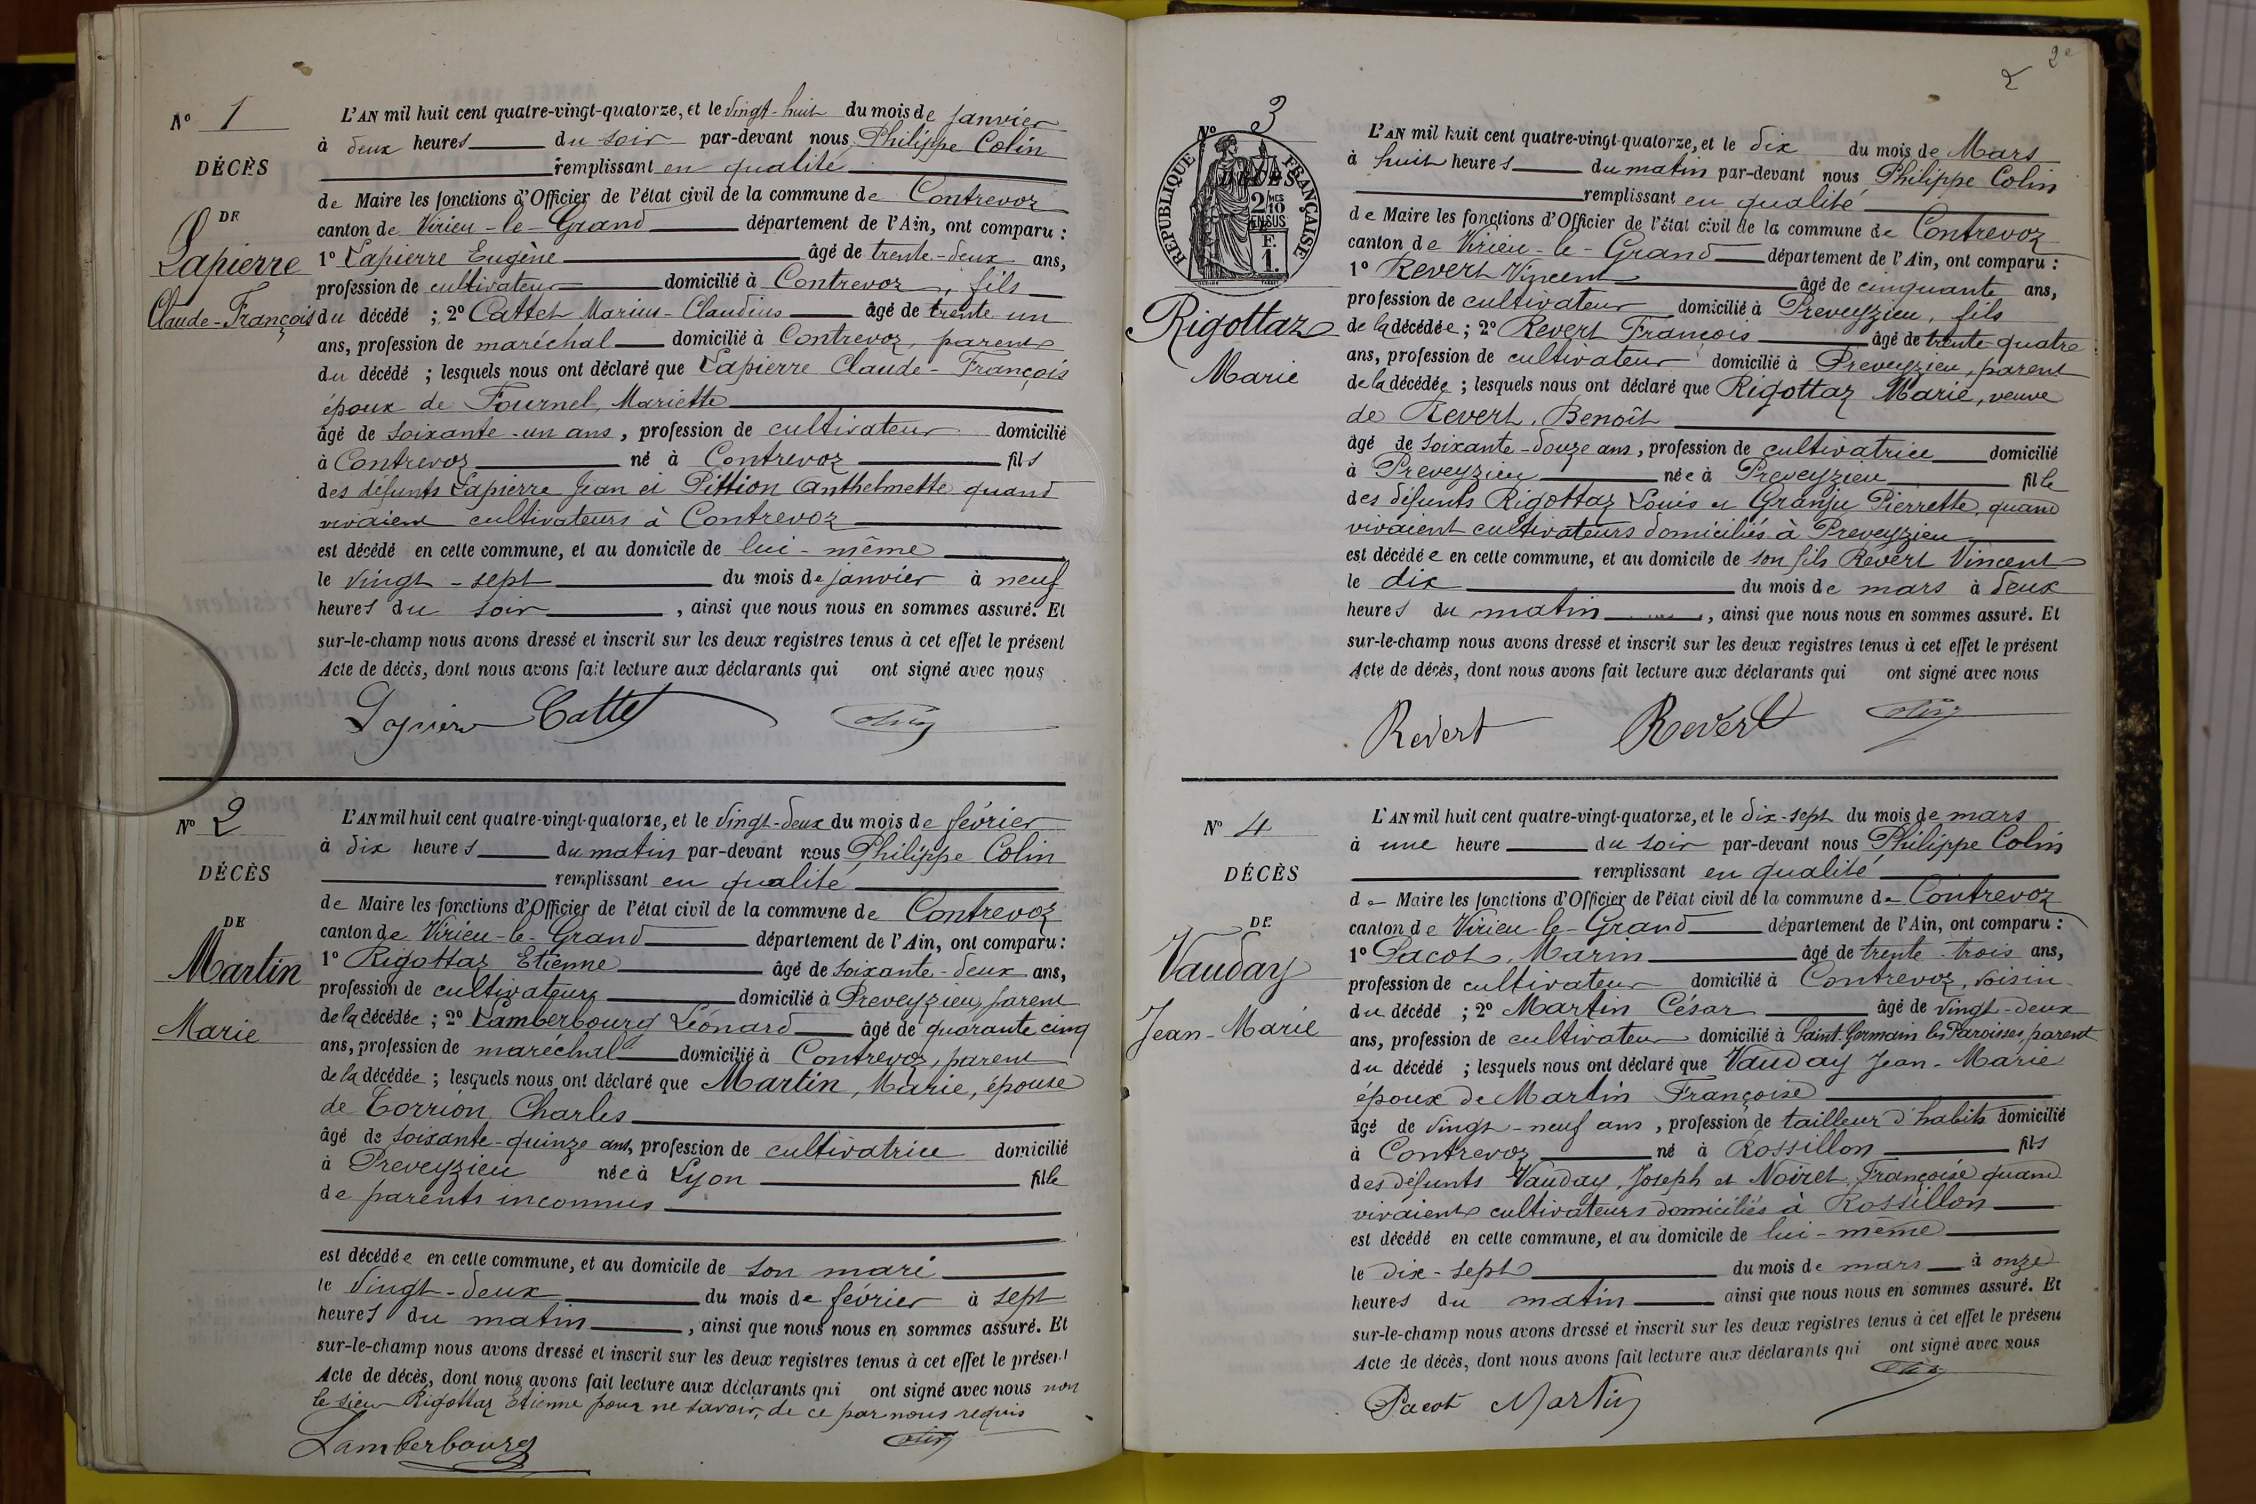 N° 1
DÉCÈS
DE
Lapierre
Claude-François
L'AN mil huit cent quatre-vingt-quatorze, et le vingt-huit du mois de janvier
à deux heures du soir par-devant nous Philippe Colin
remplissant en qualité
de Maire les fonctions d'Officier de l'état civil de la commune de Contrevoz
canton de Virieu-le-Grand département de l'Ain, ont comparu :
1° Lapierre Eugène âgé de trente-deux ans,
profession de cultivateur domicilié à Contrevoz, fils
du décédé ; 2° Cattet Marius-Claudius âgé de trente un
ans, profession de maréchal domicilié à Contrevoz, parent
du décédé ; lesquels nous ont déclaré que Lapierre Claude-François
époux de Fournel, Mariette
âgé de soixante-un ans, profession de cultivateur domicilié
à Contrevoz né à Contrevoz fils
des défunts Lapierre Jean et Pittion Anthelmette quand
vivaient cultivateurs à Contrevoz
est décédé en cette commune, et au domicile de lui-même
le vingt-sept du mois de janvier à neuf
heures du soir, ainsi que nous nous en sommes assuré. Et
sur-le-champ nous avons dressé et inscrit sur les deux registres tenus à cet effet le présent
Acte de décès, dont nous avons fait lecture aux déclarants qui ont signé avec nous
Lapierre Cattet Colin
N° 2
DÉCÈS
DE
Martin
Marie
L'AN mil huit cent quatre-vingt-quatorze, et le vingt-deux du mois de février
à dix heures du matin par-devant nous Philippe Colin
remplissant en qualité
de Maire les fonctions d'Officier de l'état civil de la commune de Contrevoz
canton de Virieu-le-Grand département de l'Ain, ont comparu :
1° Rigottaz Etienne âgé de soixante-deux ans,
profession de cultivateur domicilié à Preveyzieu, parent
de la décédée ; 2° Lamberbourg Léonard âgé de quarante cinq
ans, profession de maréchal domicilié à Contrevoz, parent
de la décédée ; lesquels nous ont déclaré que Martin, Marie, épouse
de Torrion Charles
âgé de soixante-quinze ans, profession de cultivatrice domicilié
à Preveyzieu née à Lyon fille
de parents inconnus
est décédée en cette commune, et au domicile de son mari
le vingt-deux du mois de février à sept
heures du matin, ainsi que nous nous en sommes assuré. Et
sur-le-champ nous avons dressé et inscrit sur les deux registres tenus à cet effet le présent
Acte de décès, dont nous avons fait lecture aux déclarants qui ont signé avec nous non
le sieur Rigottaz Etienne pour ne savoir, de ce par nous requis
Lamberbourg Colin
2 2e
N° 3
DÉCÈS
RÉPUBLIQUE FRANÇAISE
2 MES
10
EN SUS
F.
1.
Rigottaz
Marie
L'AN mil huit cent quatre-vingt-quatorze, et le dix du mois de Mars
à huit heures du matin par-devant nous Philippe Colin
remplissant en qualité
de Maire les fonctions d'Officier de l'état civil de la commune de Contrevoz
canton de Virieu-le-Grand département de l'Ain, ont comparu :
1° Revert Vincent âgé de cinquante ans,
profession de cultivateur domicilié à Preveyzieu, fils
de la décédée ; 2° Revert François âgé de trente-quatre
ans, profession de cultivateur domicilié à Preveyzieu, parent
de la décédée ; lesquels nous ont déclaré que Rigottaz Marie, veuve
de Revert, Benoît
âgé de soixante-douze ans, profession de cultivatrice domicilié
à Preveyzieu née à Preveyzieu fille
des défunts Rigottaz Louis et Granju Pierrette, quand
vivaient cultivateurs domiciliés à Preveyzieu
est décédée en cette commune, et au domicile de son fils Revert Vincent
le dix du mois de mars à deux
heures du matin, ainsi que nous nous en sommes assuré. Et
sur-le-champ nous avons dressé et inscrit sur les deux registres tenus à cet effet le présent
Acte de décès, dont nous avons fait lecture aux déclarants qui ont signé avec nous
Revert Revert Colin
N° 4
DÉCÈS
DE
Vauday
Jean-Marie
L'AN mil huit cent quatre-vingt-quatorze, et le dix-sept du mois de mars
à une heure du soir par-devant nous Philippe Colin
remplissant en qualité
de Maire les fonctions d'Officier de l'état civil de la commune de Contrevoz
canton de Virieu-le-Grand département de l'Ain, ont comparu :
1° Pacot, Marin âgé de trente-trois ans,
profession de cultivateur domicilié à Contrevoz, voisin
du décédé ; 2° Martin César âgé de vingt-deux
ans, profession de cultivateur domicilié à Saint-Germain les Paroisses, parent
du décédé ; lesquels nous ont déclaré que Vauday Jean-Marie
époux de Martin Françoise
âgé de vingt-neuf ans, profession de tailleur d'habits domicilié
à Contrevoz né à Rossillon fils
des défunts Vauday, Joseph et Noiret, Françoise quand
vivaient cultivateurs domiciliés à Rossillon
est décédé en cette commune, et au domicile de lui-même
le dix-sept du mois de mars à onze
heures du matin ainsi que nous nous en sommes assuré. Et
sur-le-champ nous avons dressé et inscrit sur les deux registres tenus à cet effet le présent
Acte de décès, dont nous avons fait lecture aux déclarants qui ont signé avec nous
Pacot Martin Colin